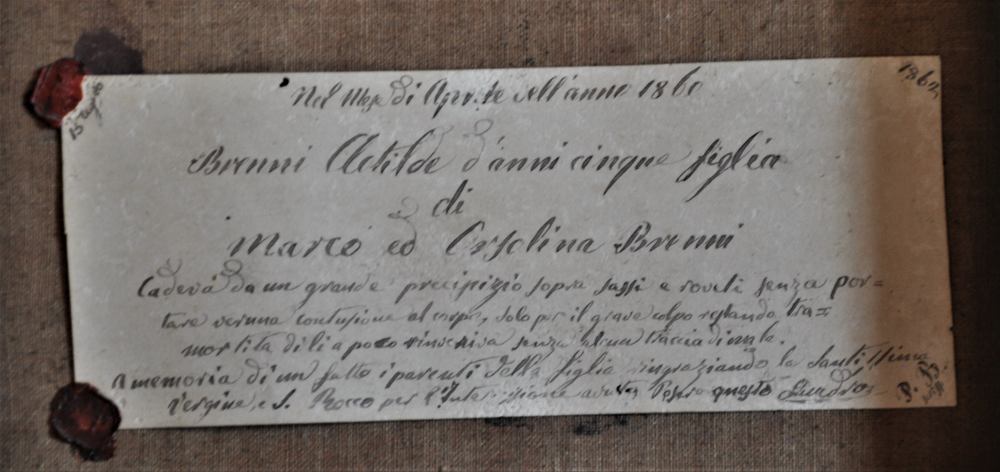 1864
Nel Mese di Aprile dell'anno 1860
Brenni Clotilde d'anni cinque figlia
di
Marco ed Orsolina Brenni
Cadeva da un grande precipizio sopra sassi e roveti senza por=
tare veruna contusione al corpo, solo per il grave colpo restando tra=
mortita di li a poco rinveniva senza alcuna traccia di male.
A memoria di un fatto i parenti della figlia ringraziando la Santissima
Vergine e S. Rocco per l'Intercessione avuta Posero questo Quadro
P. B.